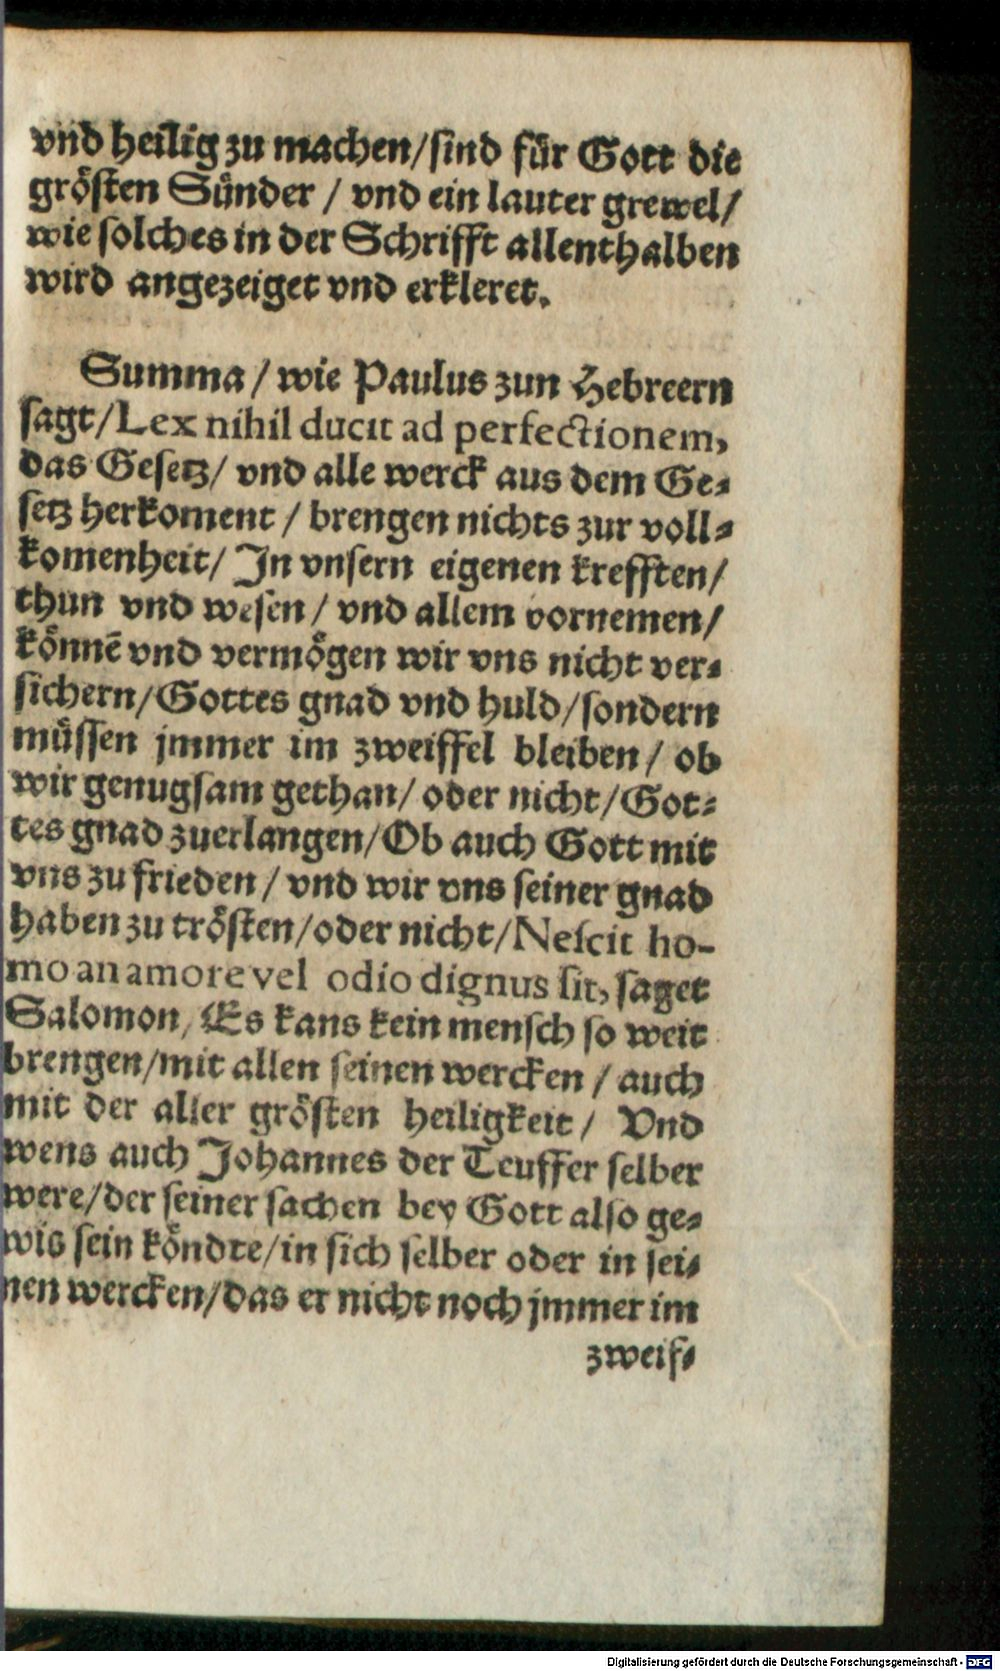 vnd heilig zu machen/sind für Gott die
grösten Sünder / vnd ein lauter grewel/
wie solches in der Schrifft allenthalben
wird angezeiget vnd erkleret.
Summa / wie Paulus zun Hebreern
sagt/Lex nihil ducit ad perfectionem,
das Gesetz/ vnd alle werck aus dem Ge-
setz herkoment / brengen nichts zur voll-
komenheit/ In vnsern eigenen krefften/
thun vnd wesen / vnd allem vornemen/
könnē vnd vermögen wir vns nicht ver-
sichern/Gottes gnad vnd huld/sondern
müssen jmmer im zweiffel bleiben / ob
wir genugsam gethan/ oder nicht/Got-
tes gnad zuerlangen/Ob auch Gott mit
vns zu frieden / vnd wir vns seiner gnad
haben zu trösten/oder nicht/Nescit ho-
mo an amore vel odio dignus sit, saget
Salomon, Es kans kein mensch so weit
brengen/mit allen seinen wercken / auch
mit der aller grösten heiligkeit/ Vnd
wens auch Johannes der Teuffer selber
were/der seiner sachen bey Gott also ge-
wis sein köndte/in sich selber oder in sei-
nen wercken/das er nicht noch jmmer im
zweif-
Digitalisierung gefördert durch die Deutsche Forschungsgemeinschaft - DFG